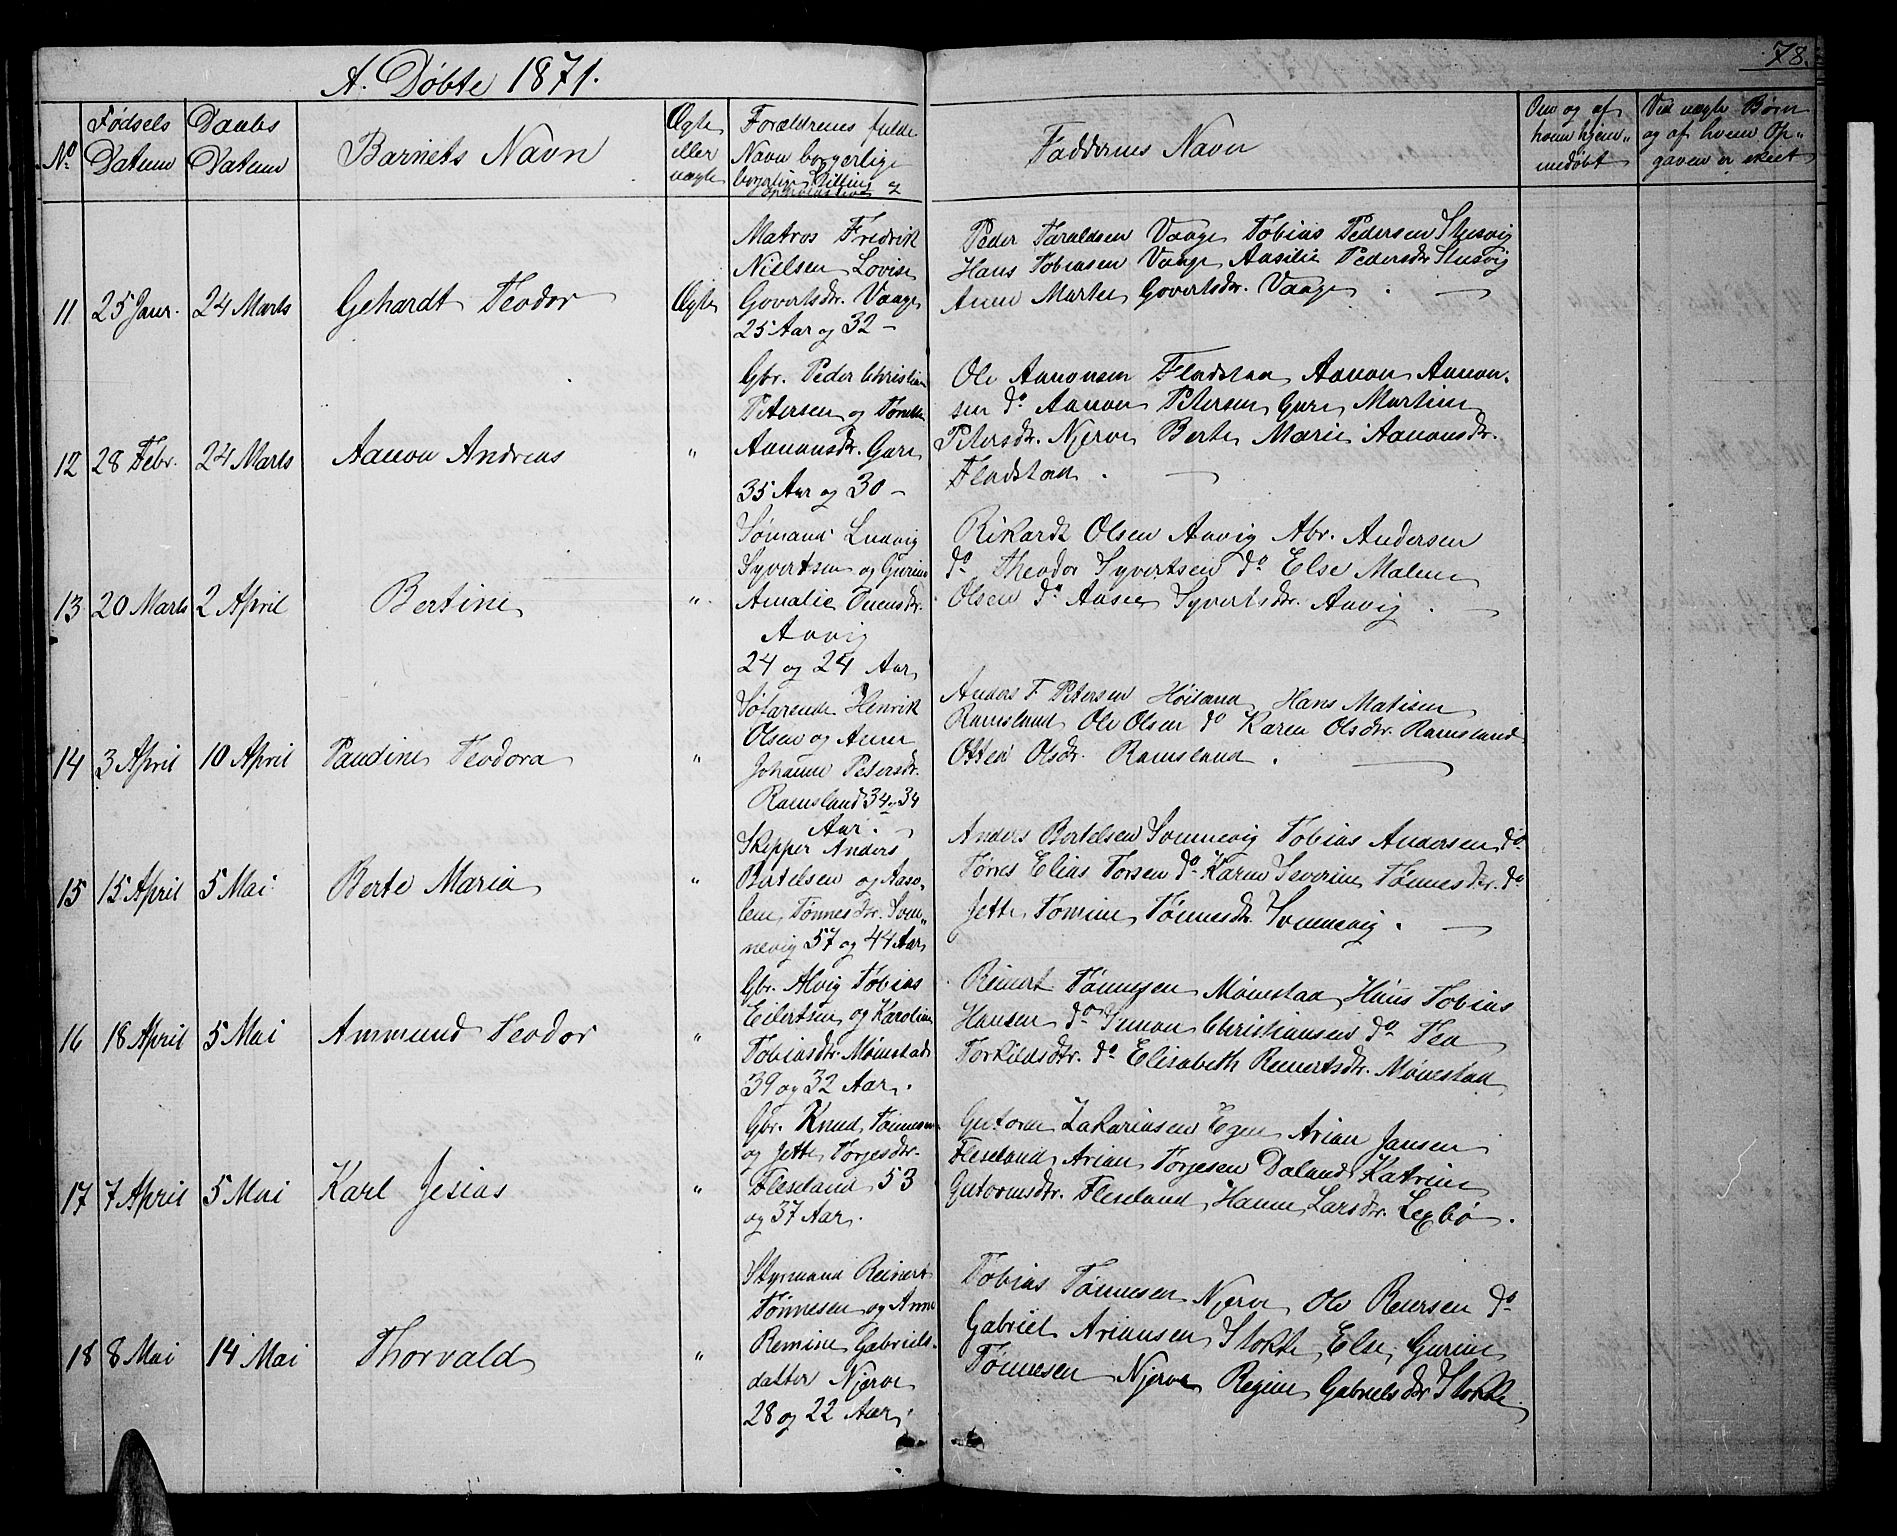 A. Døbte 1871.
78.
No.
Fødsels Datum
Daabs Datum
Barnets Navn
Ægte eller uægte
Forældrenes fulde
Navn borgerlige
borgerlige Stilling og
Faddernes Navn
Om og af
hvem hjem„
medøbt
Ved uægte Børn
og af hvem Op„
gaven er skeet
11 25 Janr. 24 Marts Gehardt Teodor Ægte
Matros Fredrik
Nielsen Lovise
Govertsdr. Vaage
25 Aar og 32 –
Peder Taraldsen Vaage Tobias Pedersen
Hans Tobiasen Vaage Aasilie Pedersdr.
Anne Marte Govertsdr. Vaage . —
12 28 Febr. 24 Marts Aanon Andreas „
Gbr. Peder Christian
Petersen og
Aanonsdr. Gare
35 Aar og 30 –
Ole Aanonsen Fladstaa Aanon Aanon-
sen do Aanon Petersen Gare Martine
Petersdr. Njerve Berte Marie Aanonsdr.
Fladstaa . —
13 20 Marts 2 April Bertine „
Sømand Ludvig
Syvertsen og Gurine
Amalie
Aavig
24 og 24 Aar
Rikardt Olsen Aavig Abr. Andersen
do Theodor Syvertsen do Else Malene
Olsen do Aasee Syvertsdr. Aavig . —
14 3 April 10 April Paudine Teodora „
Søfarende Henrik
Olsen og Anne
Johanne Petersdr.
Ramsland 34 og 34
Aar. –
Anders F Petersen Høiland Hans Matisen
Ramsland Ole Olsen do Karen Olsdr. Ramsland
Otten Olsdr. Ramsland . —
15 15 April 5 Mai Berte Maria „
Skipper Anders
Bertelsen og Aaso-
lene Tønnesdr. Sven„
nevig 57 og 44 Aar
Anders Bertelsen Svennevig Tobias Andersen do
Tønes Elias Torsen do Karen Severine Tønnesdr. do
Jette Tomine Tønnesdr. Svennevig . —
16 18 April 5 Mai Ammund Teodor „
Gbr. Alvig Tobias
Eilertsen og Karoline
Tobiasdr. Mønestad
39 og 32 Aar.
Reinert Tønnesen Mønestad Hans Tobias
Hansen do Simon Christiansen do Tea
Torkildsdtr. do Elisabeth Reinertsdr. Mønestad
17 7 April 5 Mai Karl Jesias „
Gbr. Knud Tønnesen
og Jette Torjesdtr.
Fleseland 53
og 37 Aar.
Gutorm Zakariasen Egen Arian Jansen
Fleseland Arian Torjesen Daland Katrine
Gutormsdtr. Fleseland Hanne Larsdtr. Lexbø .
18 8 Mai 14 Mai Thorvald „
Styrmand Reinert
Tønnesen og Anne
Remine Gabriels-
datter Njerve
28 og 22 Aar.
Tobias Tønnesen Njerve Ole Reiersen do
Gabriel Ariansen Stokke Else Gurine
Tønnesen Njerve Regine Gabrielsdtr Stokke